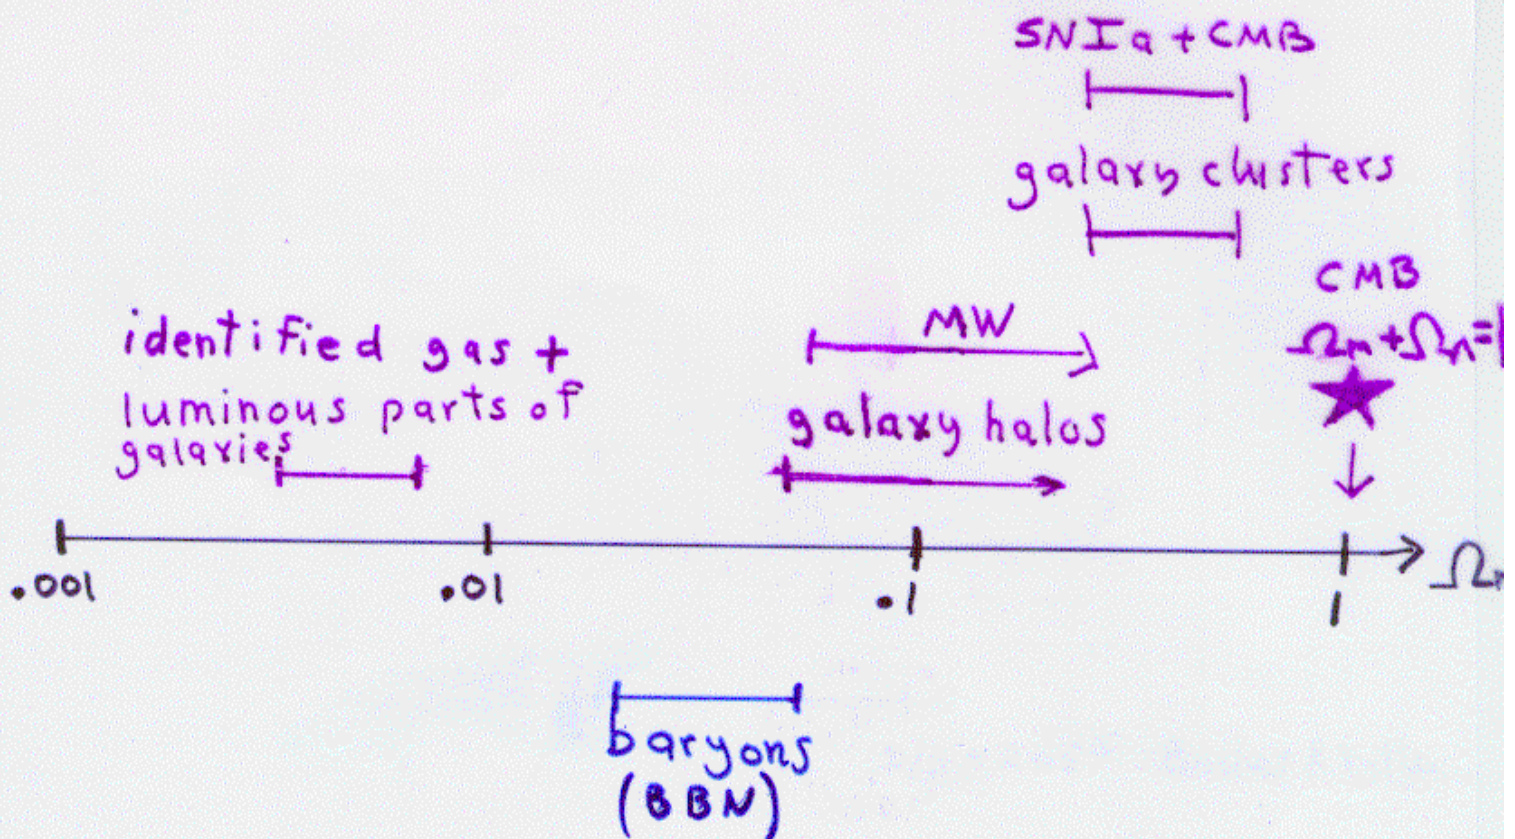 SNIa + CMB
galaxy clusters
CMB
Ωm + ΩΛ = 1
MW
identified gas +
luminous parts of
galaxies
galaxy halos
.001
.01
.1
1
baryons
(BBN)